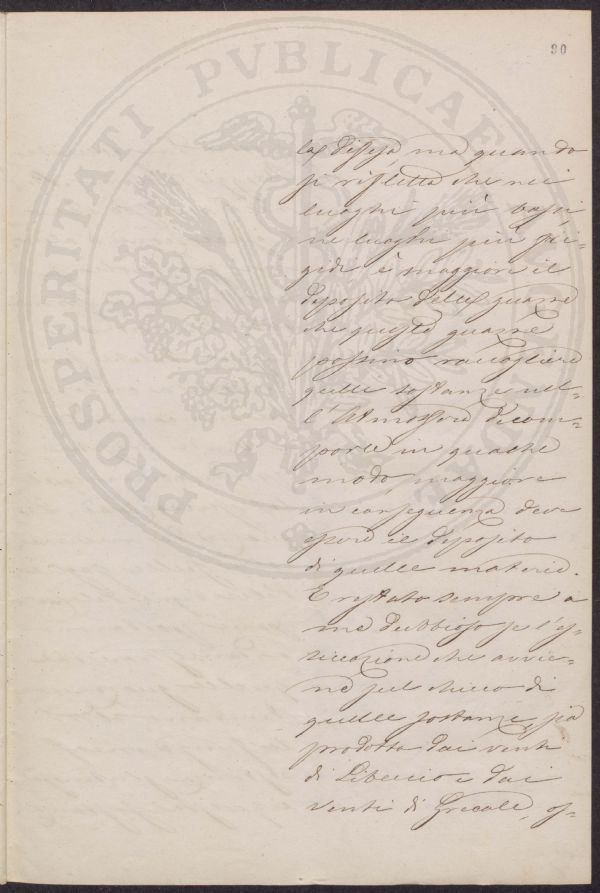 30
PROSPERITATI PVBLICAE
la difesa, ma quando
si rifletta che nei
luoghi più bassi
ne luoghi più fri-
gidi è maggiore il
deposito delle guazze
che queste guazze
possino raccogliere
quelle sostanze nel-
l'Atmosfera decom-
porle in qualche
modo, maggiore
in conseguenza deve
essere il deposito
di quelle materie.
È restato sempre a
me dubbioso se l'es-
siccazione che avvie-
ne sul chicco di
quelle sostanze, sia
prodotta dai venti
di Libeccio e dai
venti di Grecale, os-